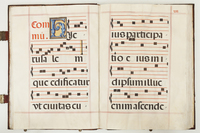 Com
mu.
rusa le m
que edificatur
vt ciuitas cu
ius participa
tio eius in i
dipsum illuc
enim ascende